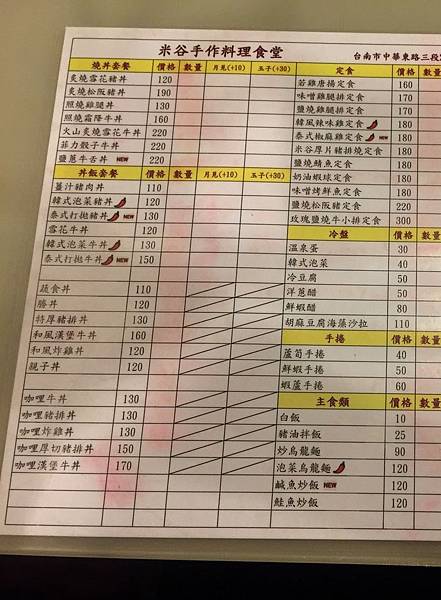 米谷手作料理食堂
台南市中華東路三段
燒丼套餐 價格 數量 月見(+10) 玉子(+30)
炙燒雪花豬丼 120
炙燒松阪豬丼 190
照燒雞腿丼 130
照燒霜降牛丼 160
火山炙燒雪花牛丼 220
菲力骰子牛丼 220
鹽蔥牛舌丼 NEW 220
丼飯套餐 價格 數量 月見(+10) 玉子(+30)
薑汁豬肉丼 110
韓式泡菜豬丼 120
泰式打拋豬丼 NEW 130
雪花牛丼 120
韓式泡菜牛丼 130
泰式打拋牛丼 NEW 150
蔬食丼 110
勝丼 120
特厚豬排丼 130
和風漢堡牛丼 160
和風炸雞丼 120
親子丼 120
咖哩牛丼 130
咖哩豬排丼 130
咖哩炸雞丼 130
咖哩厚切豬排丼 150
咖哩漢堡牛丼 170
定食 價格 數量
若雞唐揚定食 160
味噌雞腿排定食 170
鹽燒雞腿排定食 170
韓風辣味雞定食 180
泰式椒麻雞定食 NEW 180
米谷厚片豬排燒定食 180
鹽燒鯖魚定食 180
奶油蝦球定食 180
味噌烤鮮魚定食 180
鹽燒松阪豬定食 220
玫瑰鹽燒牛小排定食 300
冷盤 價格 數量
溫泉蛋 30
韓式泡菜 40
冷豆腐 50
洋蔥醋 50
鮮蝦醋 80
胡麻豆腐海藻沙拉 110
手捲 價格 數量
蘆筍手捲 40
鮮蝦手捲 50
蝦蘆手捲 60
主食類 價格 數量
白飯 10
豬油拌飯 25
炒烏龍麵 90
泡菜烏龍麵 120
鹹魚炒飯 NEW 120
鮭魚炒飯 120